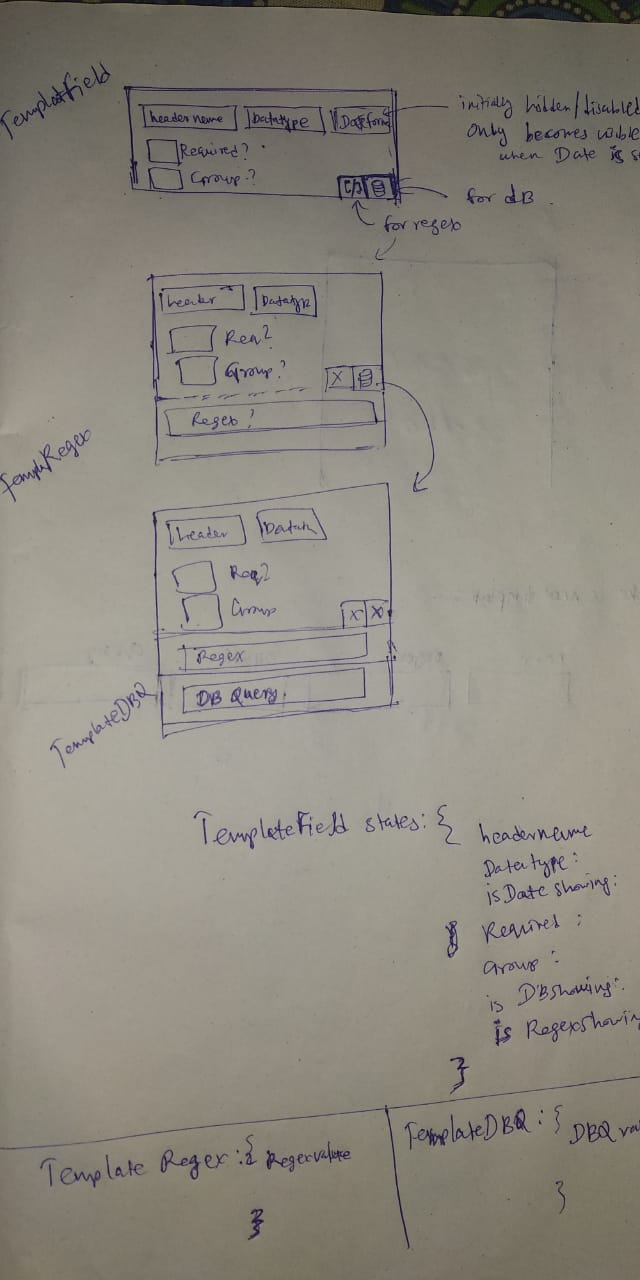 TemplateField
headername
Datatype
initially hidden/disabled
only becomes visible
when Date is
Required?
Group?
for dB.
for regex
header
Datatype
Req?
Group?
X
Regex?
TemplRegex
header
Req?
Group
X X
Regex
TemplateDBQ
DB Query.
TemplateField states: {
headername
Datatype:
isDate showing:
Required :
Group :
is DBshowing:
is Regexshowing
}
Template Regex: { Regexvalue
}
TemplateDBQ : { DBQ
}